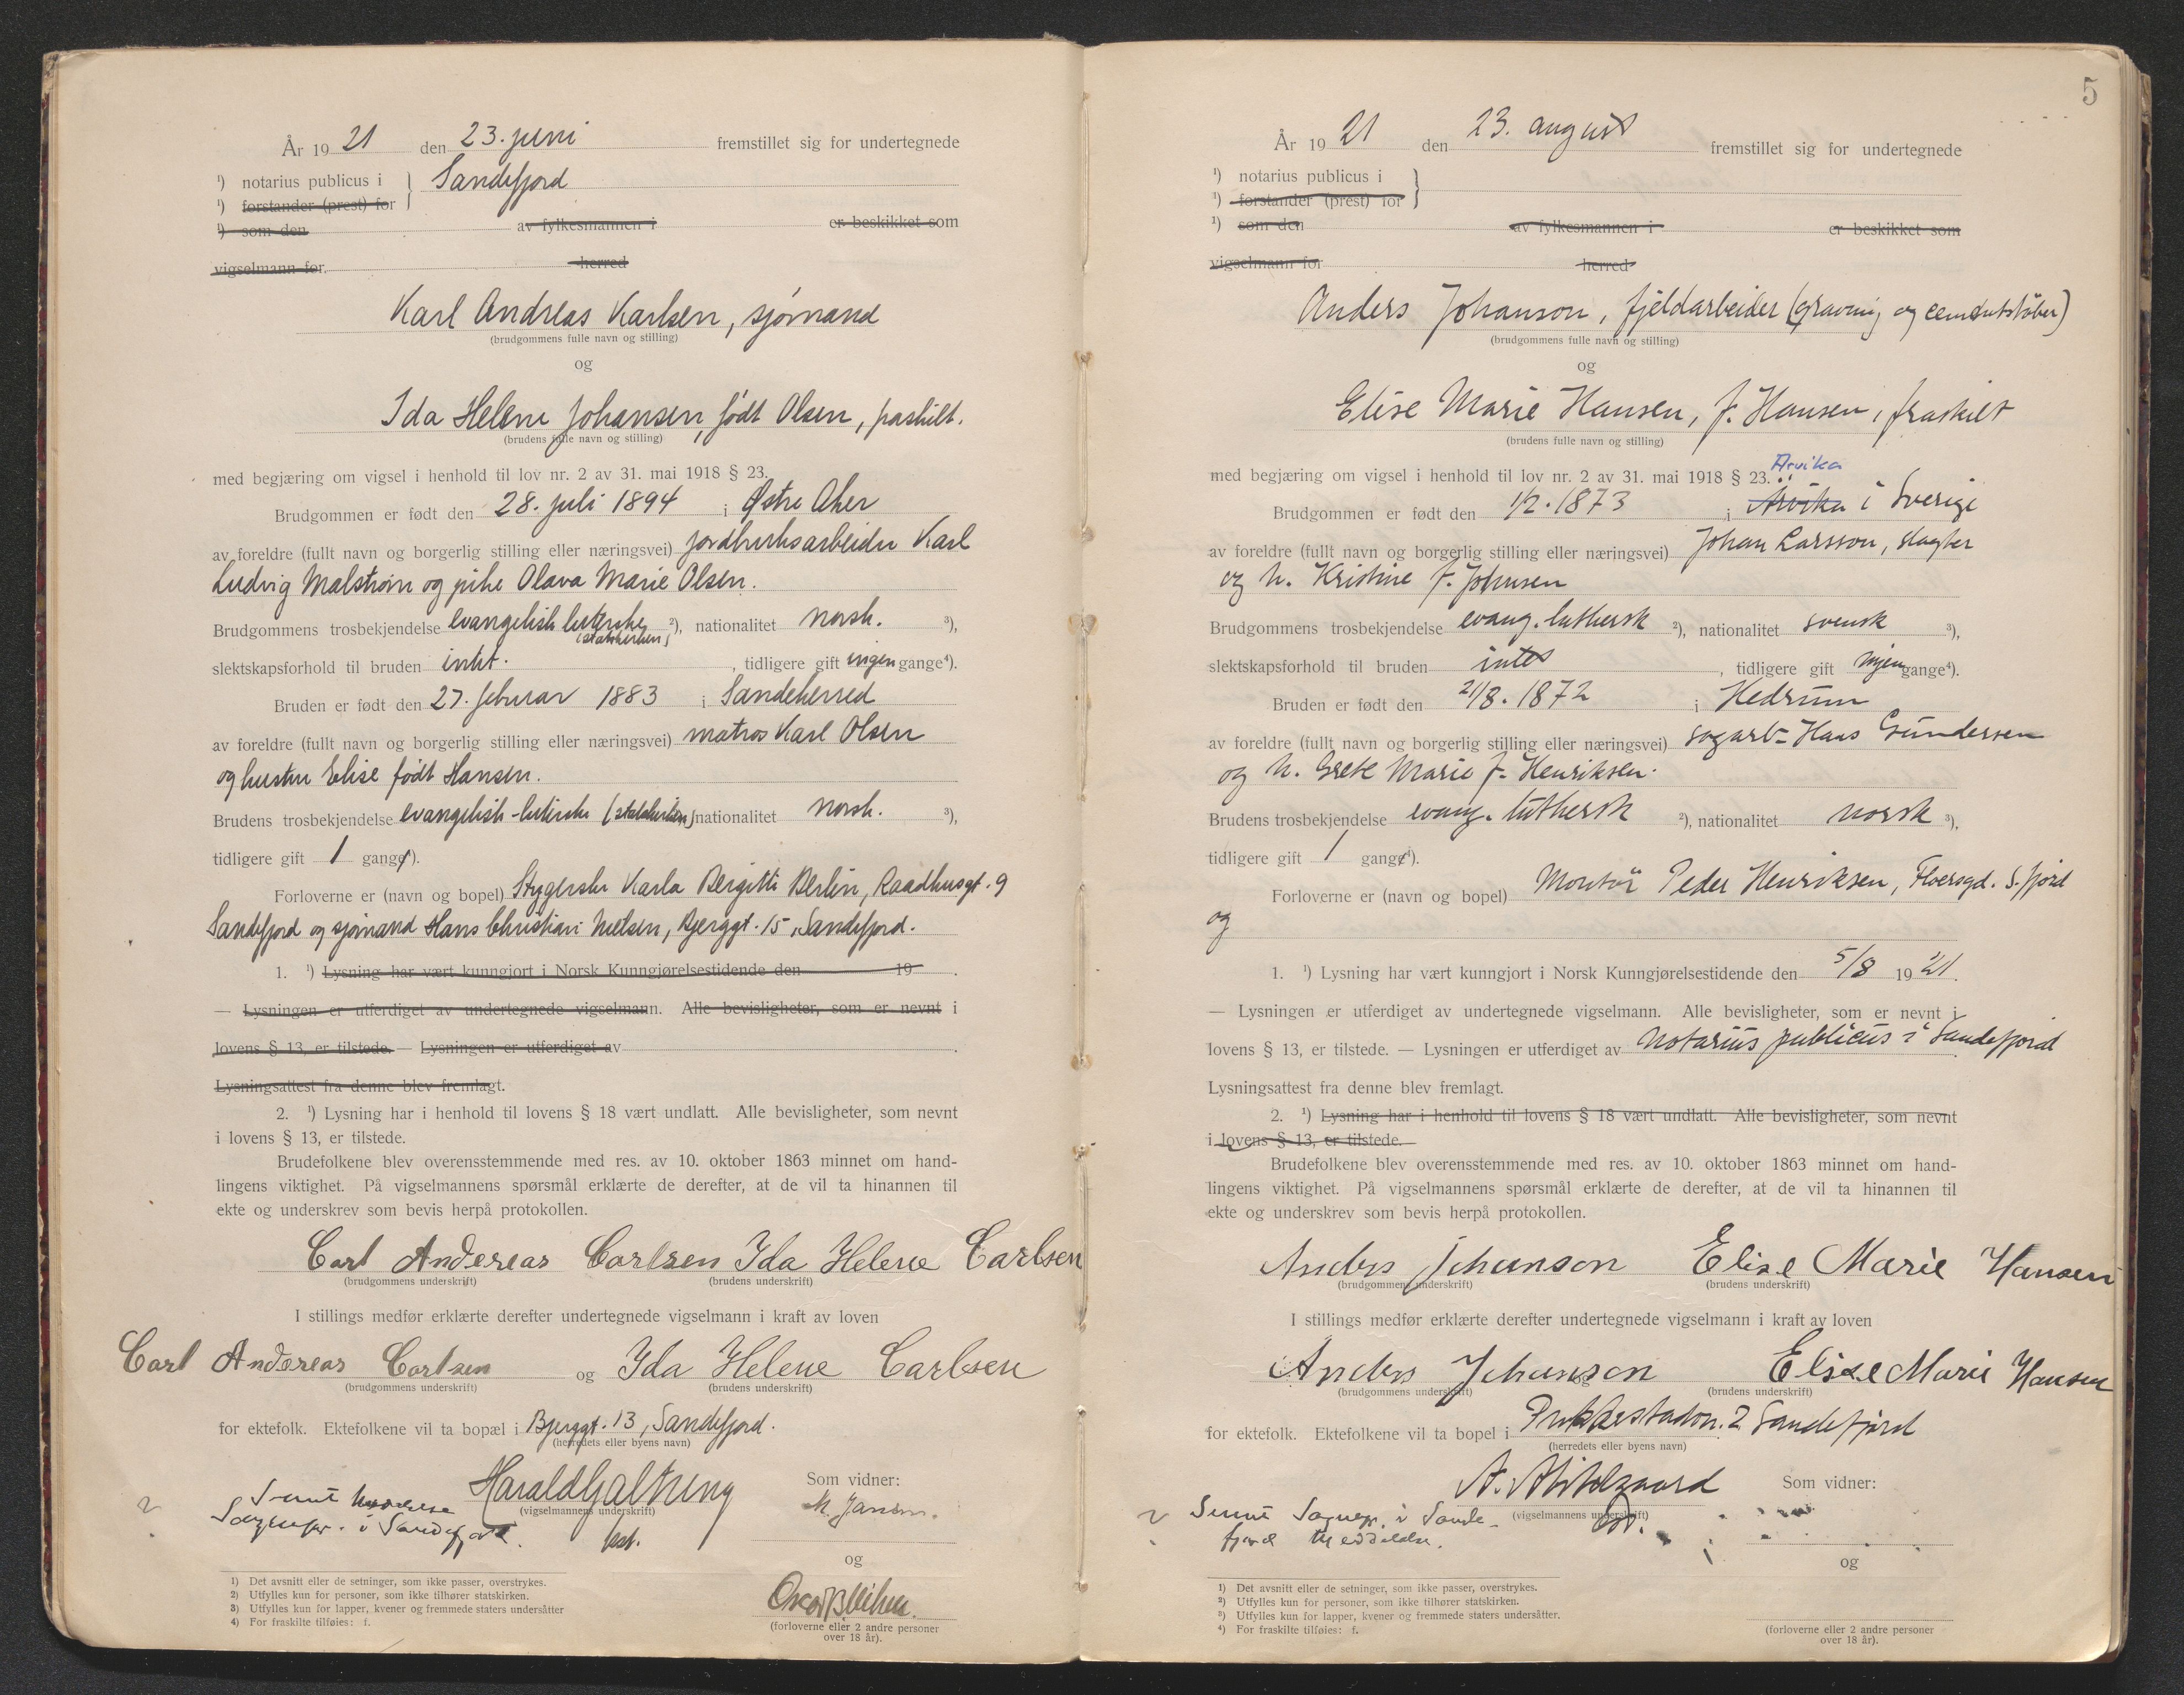 År 1921 den 23. juni fremstillet sig for undertegnede
¹) notarius publicus i } Sandefjord
¹) forstander (prest) for
¹) som den av fylkesmannen i er beskikket som
vigselmann for herred
Karl Andreas Karlsen, sjømand
(brudgommens fulle navn og stilling)
og
Ida Helene Johansen, født Olsen, fraskilt.
(brudens fulle navn og stilling)
med begjæring om vigsel i henhold til lov nr. 2 av 31. mai 1918 § 23.
Brudgommen er født den 28. juli 1894 i Østre Aker
av foreldre (fullt navn og borgerlig stilling eller næringsvei) jordbruksarbeider Karl
Ludvig Malstrøm og pike Olava Marie Olsen.
Brudgommens trosbekjendelse evangelisk luterske (statskirken) ²), nationalitet norsk. ³),
slektskapsforhold til bruden intet. , tidligere gift ingen gange⁴).
Bruden er født den 27. februar 1883 i Sandeherred
av foreldre (fullt navn og borgerlig stilling eller næringsvei) matros Karl Olsen
og hustru Elise født Hansen.
Brudens trosbekjendelse evangelisk-luterske (statskirken) nationalitet norsk. ³),
tidligere gift 1 gange⁴).
Forloverne er (navn og bopel) Strygerske Karla Bergitte Berlin, Raadhusgt. 9
Sandefjord og sjømand Hans Christian Nielsen, Bjerggt. 15, Sandefjord.
1. ¹) Lysning har vært kunngjort i Norsk Kunngjørelsestidende den 19 .
— Lysningen er utferdiget av undertegnede vigselmann. Alle bevisligheter, som er nevnt i
lovens § 13, er tilstede. — Lysningen er utferdiget av .
Lysningsattest fra denne blev fremlagt.
2. ¹) Lysning har i henhold til lovens § 18 vært undlatt. Alle bevisligheter, som nevnt
i lovens § 13, er tilstede.
Brudefolkene blev overensstemmende med res. av 10. oktober 1863 minnet om hand-
lingens viktighet. På vigselmannens spørsmål erklærte de derefter, at de vil ta hinannen til
ekte og underskrev som bevis herpå protokollen.
Carl Andereas Carlsen Ida Helene Carlsen
(brudgommens underskrift) (brudens underskrift)
I stillings medfør erklærte derefter undertegnede vigselmann i kraft av loven
Carl Andereas Carlsen og Ida Helene Carlsen
(brudgommens underskrift) (brudens underskrift)
for ektefolk. Ektefolkene vil ta bopæl i Bjerggt. 13, Sandefjord.
(herredets eller byens navn)
Harald Galtung Som vidner:
(vigselmannens underskrift)
Sendt
Sognepr. i Sandefjord. kst. M. Jansen.
og
1) Det avsnitt eller de setninger, som ikke passer, overstrykes.
2) Utfylles kun for personer, som ikke tilhører statskirken.
3) Utfylles kun for lapper, kvener og fremmede staters undersåtter
4) For fraskilte tilføies: f.
(forloverne eller 2 andre personer
over 18 år).
5
År 1921 den 23. august fremstillet sig for undertegnede
¹) notarius publicus i }
¹) forstander (prest) for
¹) som den av fylkesmannen i er beskikket som
vigselmann for herred
Anders Johanson, fjeldarbeider (gravning og cementstøber)
(brudgommens fulle navn og stilling)
og
Elise Marie Hansen, f. Hansen, fraskilt
(brudens fulle navn og stilling)
med begjæring om vigsel i henhold til lov nr. 2 av 31. mai 1918 § 23. Arvika
Brudgommen er født den 1/2. 1873 i Arvika i Sverige
av foreldre (fullt navn og borgerlig stilling eller næringsvei) Johan Larsson, slagter
og h. Kristine f. Johnsen
Brudgommens trosbekjendelse evang. luthersk ²), nationalitet svensk ³),
slektskapsforhold til bruden intet , tidligere gift ingen gange⁴).
Bruden er født den 21/8. 1872 i Hedrum
av foreldre (fullt navn og borgerlig stilling eller næringsvei) sagarb. Hans Gundersen
og h. Grete Marie f. Henriksen.
Brudens trosbekjendelse evang. luthersk ²), nationalitet norsk ³),
tidligere gift 1 gange⁴).
Forloverne er (navn og bopel) Montør Peder Henriksen, S.fjord
og
1. ¹) Lysning har vært kunngjort i Norsk Kunngjørelsestidende den 5/8 1921.
— Lysningen er utferdiget av undertegnede vigselmann. Alle bevisligheter, som er nevnt i
lovens § 13, er tilstede. — Lysningen er utferdiget av Notarius publicus i Sandefjord
Lysningsattest fra denne blev fremlagt.
2. ¹) Lysning har i henhold til lovens § 18 vært undlatt. Alle bevisligheter, som nevnt
i lovens § 13, er tilstede.
Brudefolkene blev overensstemmende med res. av 10. oktober 1863 minnet om hand-
lingens viktighet. På vigselmannens spørsmål erklærte de derefter, at de vil ta hinannen til
ekte og underskrev som bevis herpå protokollen.
Anders Johanson Elise Marie Hansen
(brudgommens underskrift) (brudens underskrift)
I stillings medfør erklærte derefter undertegnede vigselmann i kraft av loven
Anders Johanson og Elise Marie Hansen
(brudgommens underskrift) (brudens underskrift)
for ektefolk. Ektefolkene vil ta bopel i 2 Sandefjord
(herredets eller byens navn)
Som vidner:
Sendt Sognepr. i Sande- (vigselmannens underskrift)
fjord Meddelelse.
og
¹) Det avsnitt eller de setninger, som ikke passer, overstrykes.
²) Utfylles kun for personer, som ikke tilhører statskirken.
³) Utfylles kun for lapper, kvener og fremmede staters undersåtter.
⁴) For fraskilte tilføies: f.
(forloverne eller 2 andre personer
over 18 år).